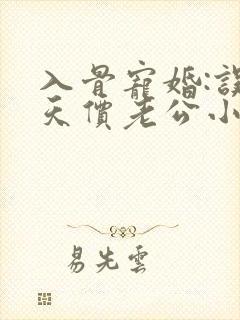 入骨寵婚:誤
天價老公小
易先雲